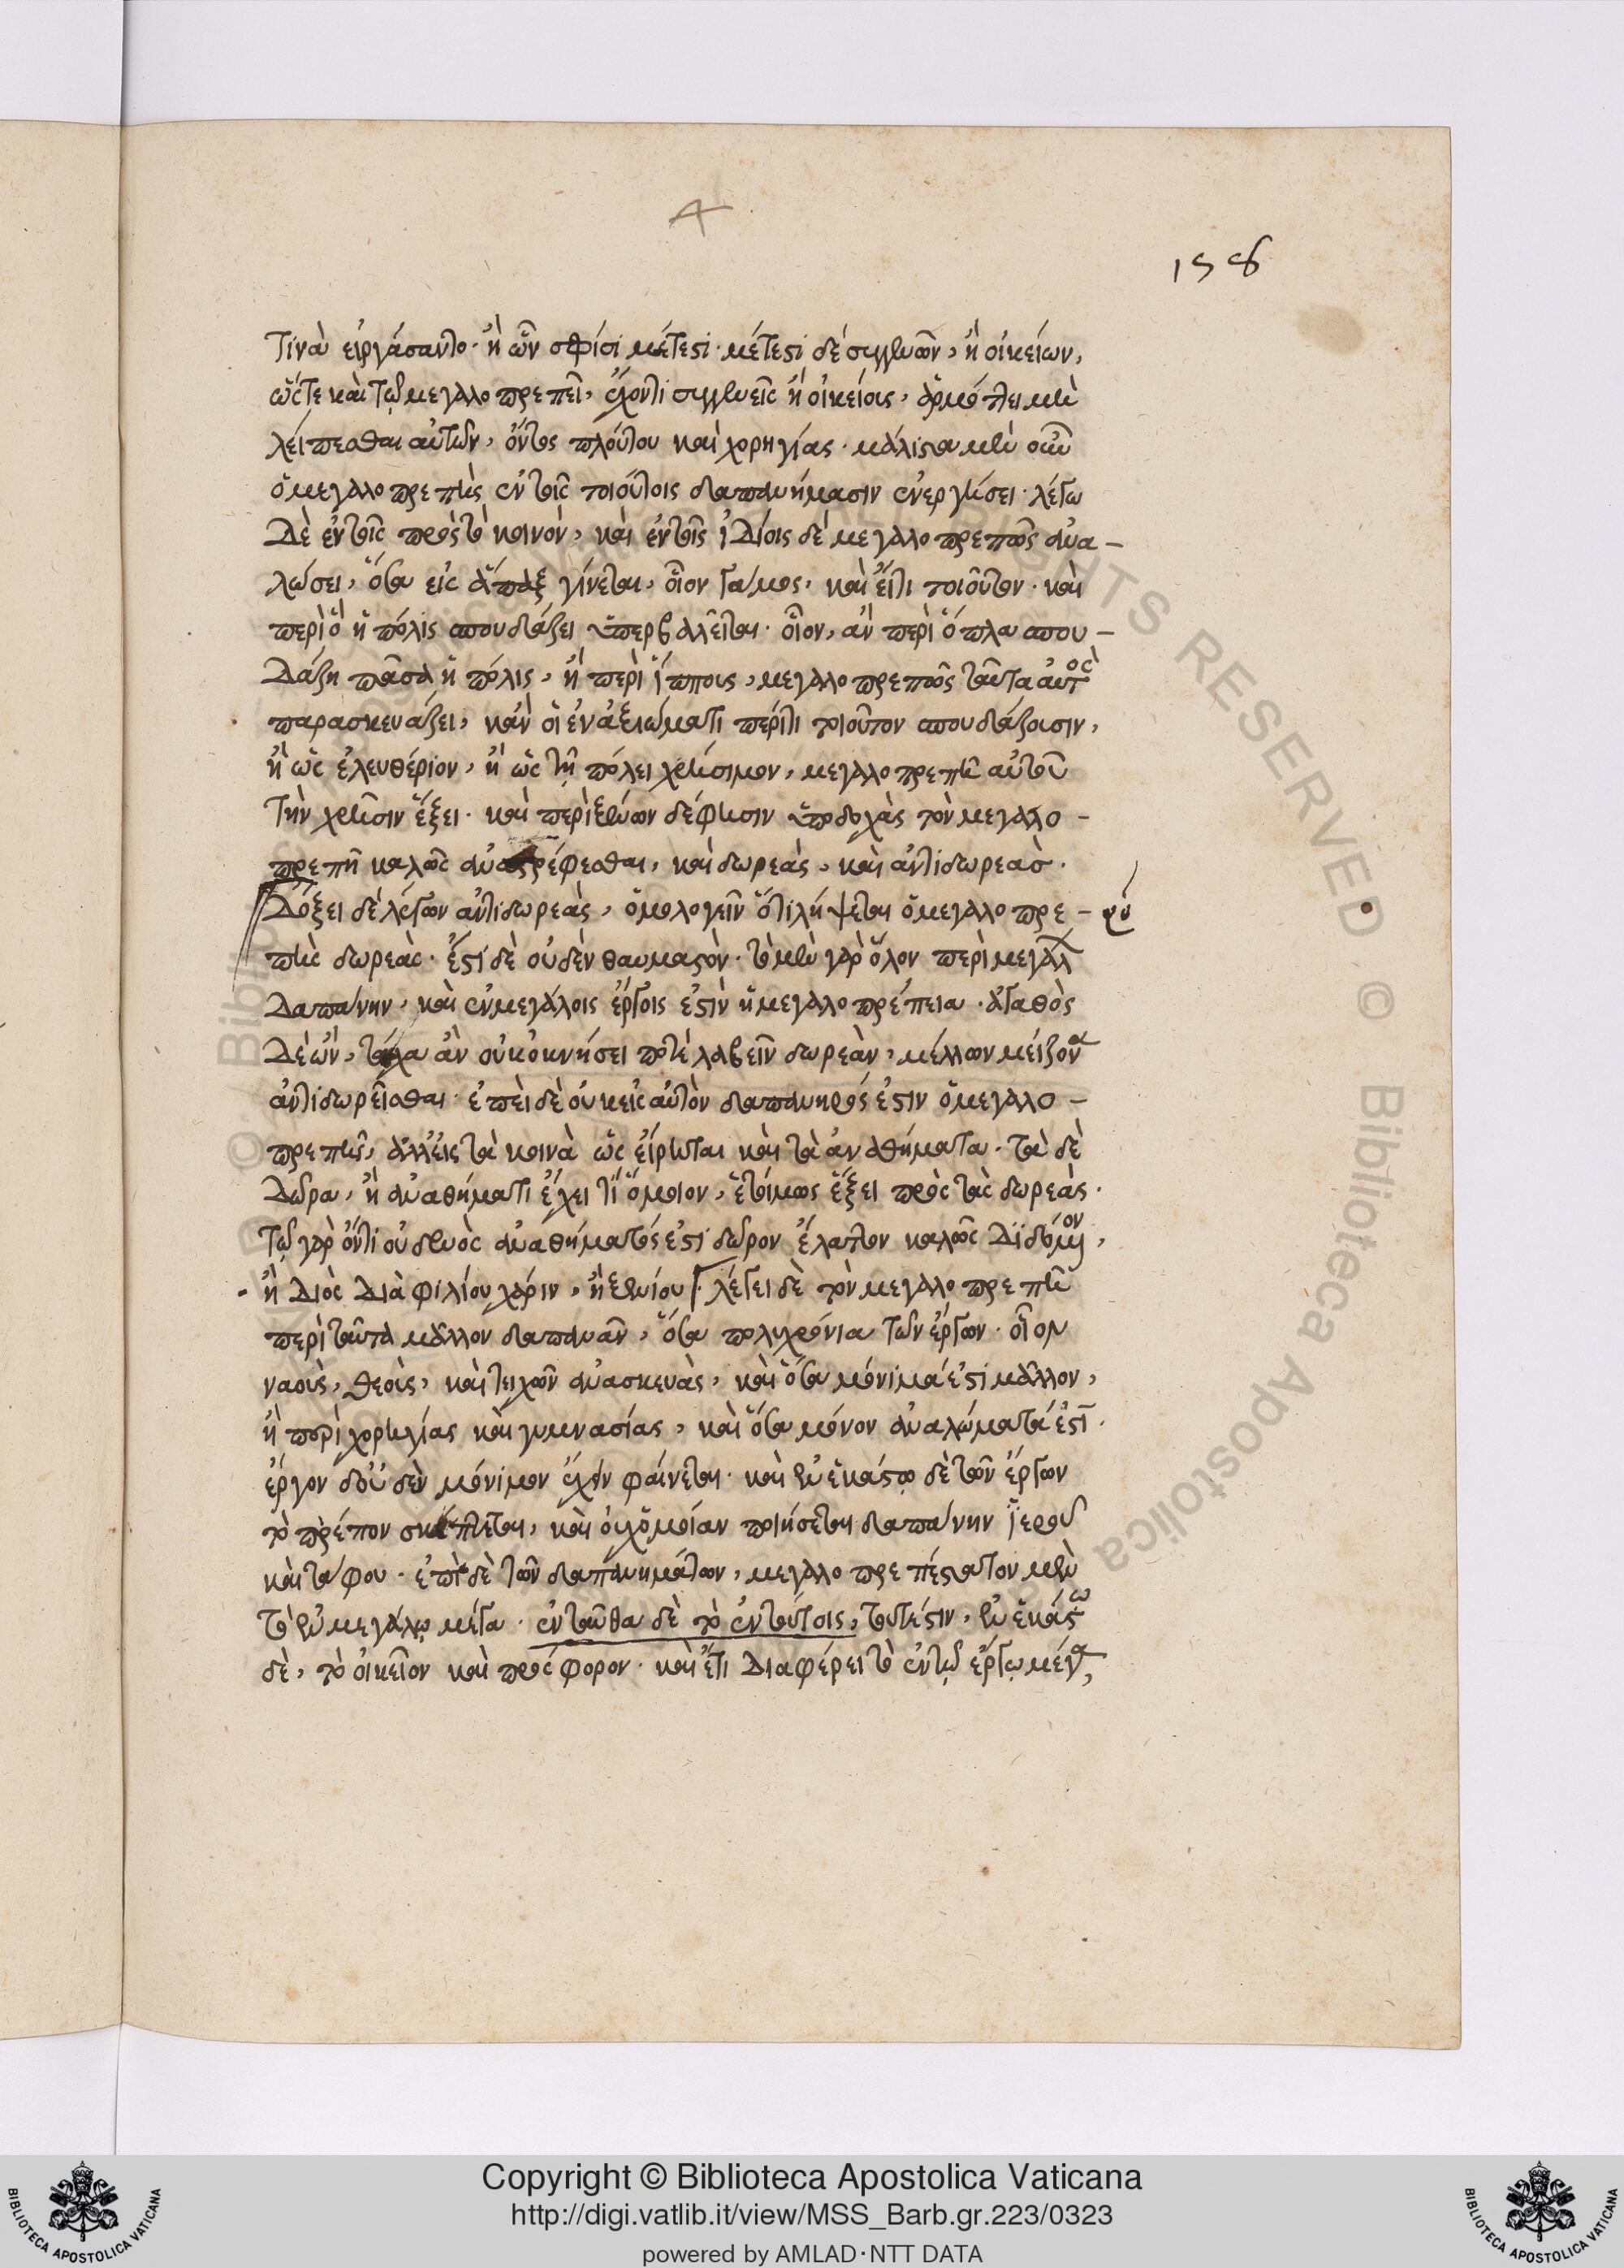 158
τινὰ εἰργάσαντο· ἢ ὧν σφίσι μέτεστι· μέτεστι δὲ συγγενῶν, ἢ οἰκείων,
ὥστε καὶ τῷ μεγαλοπρεπεῖ, ἔχοντι συγγενεῖς ἢ οἰκείοις, ἁρμόττει μὴ
λείπεσθαι αὐτῶν, ὄντος πλούτου καὶ χορηγίας· μάλιστα μὲν οὖν
ὁ μεγαλοπρεπὴς ἐν τοῖς τοιούτοις δαπανήμασιν ἐνεργήσει· λέγω
δὲ ἐν τοῖς πρὸς τὸ κοινὸν, καὶ ἐν τοῖς ἰδίοις δὲ μεγαλοπρεπῶς ἀνα-
λώσει, ὅσα εἰς ἅπαξ γίνεται, οἷον γάμος, καὶ εἴ τι τοιοῦτον· καὶ
περὶ ὃ ἡ πόλις σπουδάζει ὑπερβαλεῖται· οἷον, ἂν περὶ ὅπλα σπου-
δάζῃ πᾶσα ἡ πόλις, ἢ περὶ ἵππους, μεγαλοπρεπῶς ταῦτα αὐτὸς
παρασκευάζει, κἂν οἱ ἐν ἀξιώματι περί τι τοιοῦτον σπουδάζουσιν,
ἢ ὡς ἐλευθέριον, ἢ ὡς τῇ πόλει χρήσιμον, μεγαλοπρεπῆ αὐτοῦ
τὴν χρῆσιν ἕξει· καὶ περὶ ξένων δέ φησιν ὑποδοχὰς τὸν μεγαλο-
πρεπῆ καλῶς ἀναστρέφεσθαι, καὶ δωρεὰς, καὶ ἀντιδωρεάς.
Δόξει δὲ λέγων ἀντιδωρεὰς, ὁμολογεῖν ὅτι λήψεται ὁ μεγαλοπρε-
πὴς δωρεάς· ἔστι δὲ οὐδὲν θαυμαστόν· τὸ μὲν γὰρ ὅλον περὶ μεγάλ
δαπάνην, καὶ ἐν μεγάλοις ἔργοις ἐστὶν ἡ μεγαλοπρέπεια· ἀγαθὸς
δὲ ὢν, τάχα ἂν οὐκ ὀκνήσει ποτὲ λαβεῖν δωρεὰν, μέλλων μείζονα
ἀντιδωρεῖσθαι· ἐπεὶ δὲ οὐκ εἰς αὐτὸν δαπανηρός ἐστιν ὁ μεγαλο-
πρεπὴς, ἀλλ' εἰς τὰ κοινὰ ὡς εἴρηται καὶ τὰ ἀναθήματα· τὰ δὲ
δῶρα, ἢ ἀναθήματι ἔχει τι ὅμοιον, ἑτοίμως ἕξει πρὸς τὰς δωρεάς.
τῷ γὰρ ὄντι οὐδενὸς ἀναθήματός ἐστι δῶρον ἔλαττον καλῶς διδόμενον,
ἢ Διὸς διὰ φιλίου χάριν, ἢ ξενίου· λέγει δὲ τὸν μεγαλοπρεπῆ
περὶ ταῦτα μᾶλλον δαπανᾶν, ὅσα πολυχρόνια τῶν ἔργων· οἷον
ναοὺς, θεοῖς, καὶ τειχῶν ἀνασκευὰς, καὶ ὅσα μόνιμά ἐστι μᾶλλον,
ἢ περὶ χορηγίας καὶ γυμνασίας, καὶ ὅσα μόνον ἀναλώματά ἐστι.
ἔργον δ' οὐδὲν μόνιμον ἔχειν φαίνεται· καὶ ἐν ἑκάστῳ δὲ τῶν ἔργων
τὸ πρέπον σκέπτεται, καὶ οὐχ ὁμοίαν ποιήσεται δαπάνην ἱεροῦ
καὶ τάφου· ἐπὶ δὲ τῶν δαπανημάτων, μεγαλοπρεπέστατον μὲν
τὸ ἐν μεγάλῳ μέγα· ἐνταῦθα δὲ τὸ ἐν τούτοις, τουτέστιν, ἐν ἑκάστῳ
δὲ, τὸ οἰκεῖον καὶ πρόσφορον· καὶ ἔτι διαφέρει τὸ ἐν τῷ ἔργῳ μέγα,
Copyright © Biblioteca Apostolica Vaticana
http://digi.vatlib.it/view/MSS_Barb.gr.223/0323
powered by AMLAD·NTT DATA